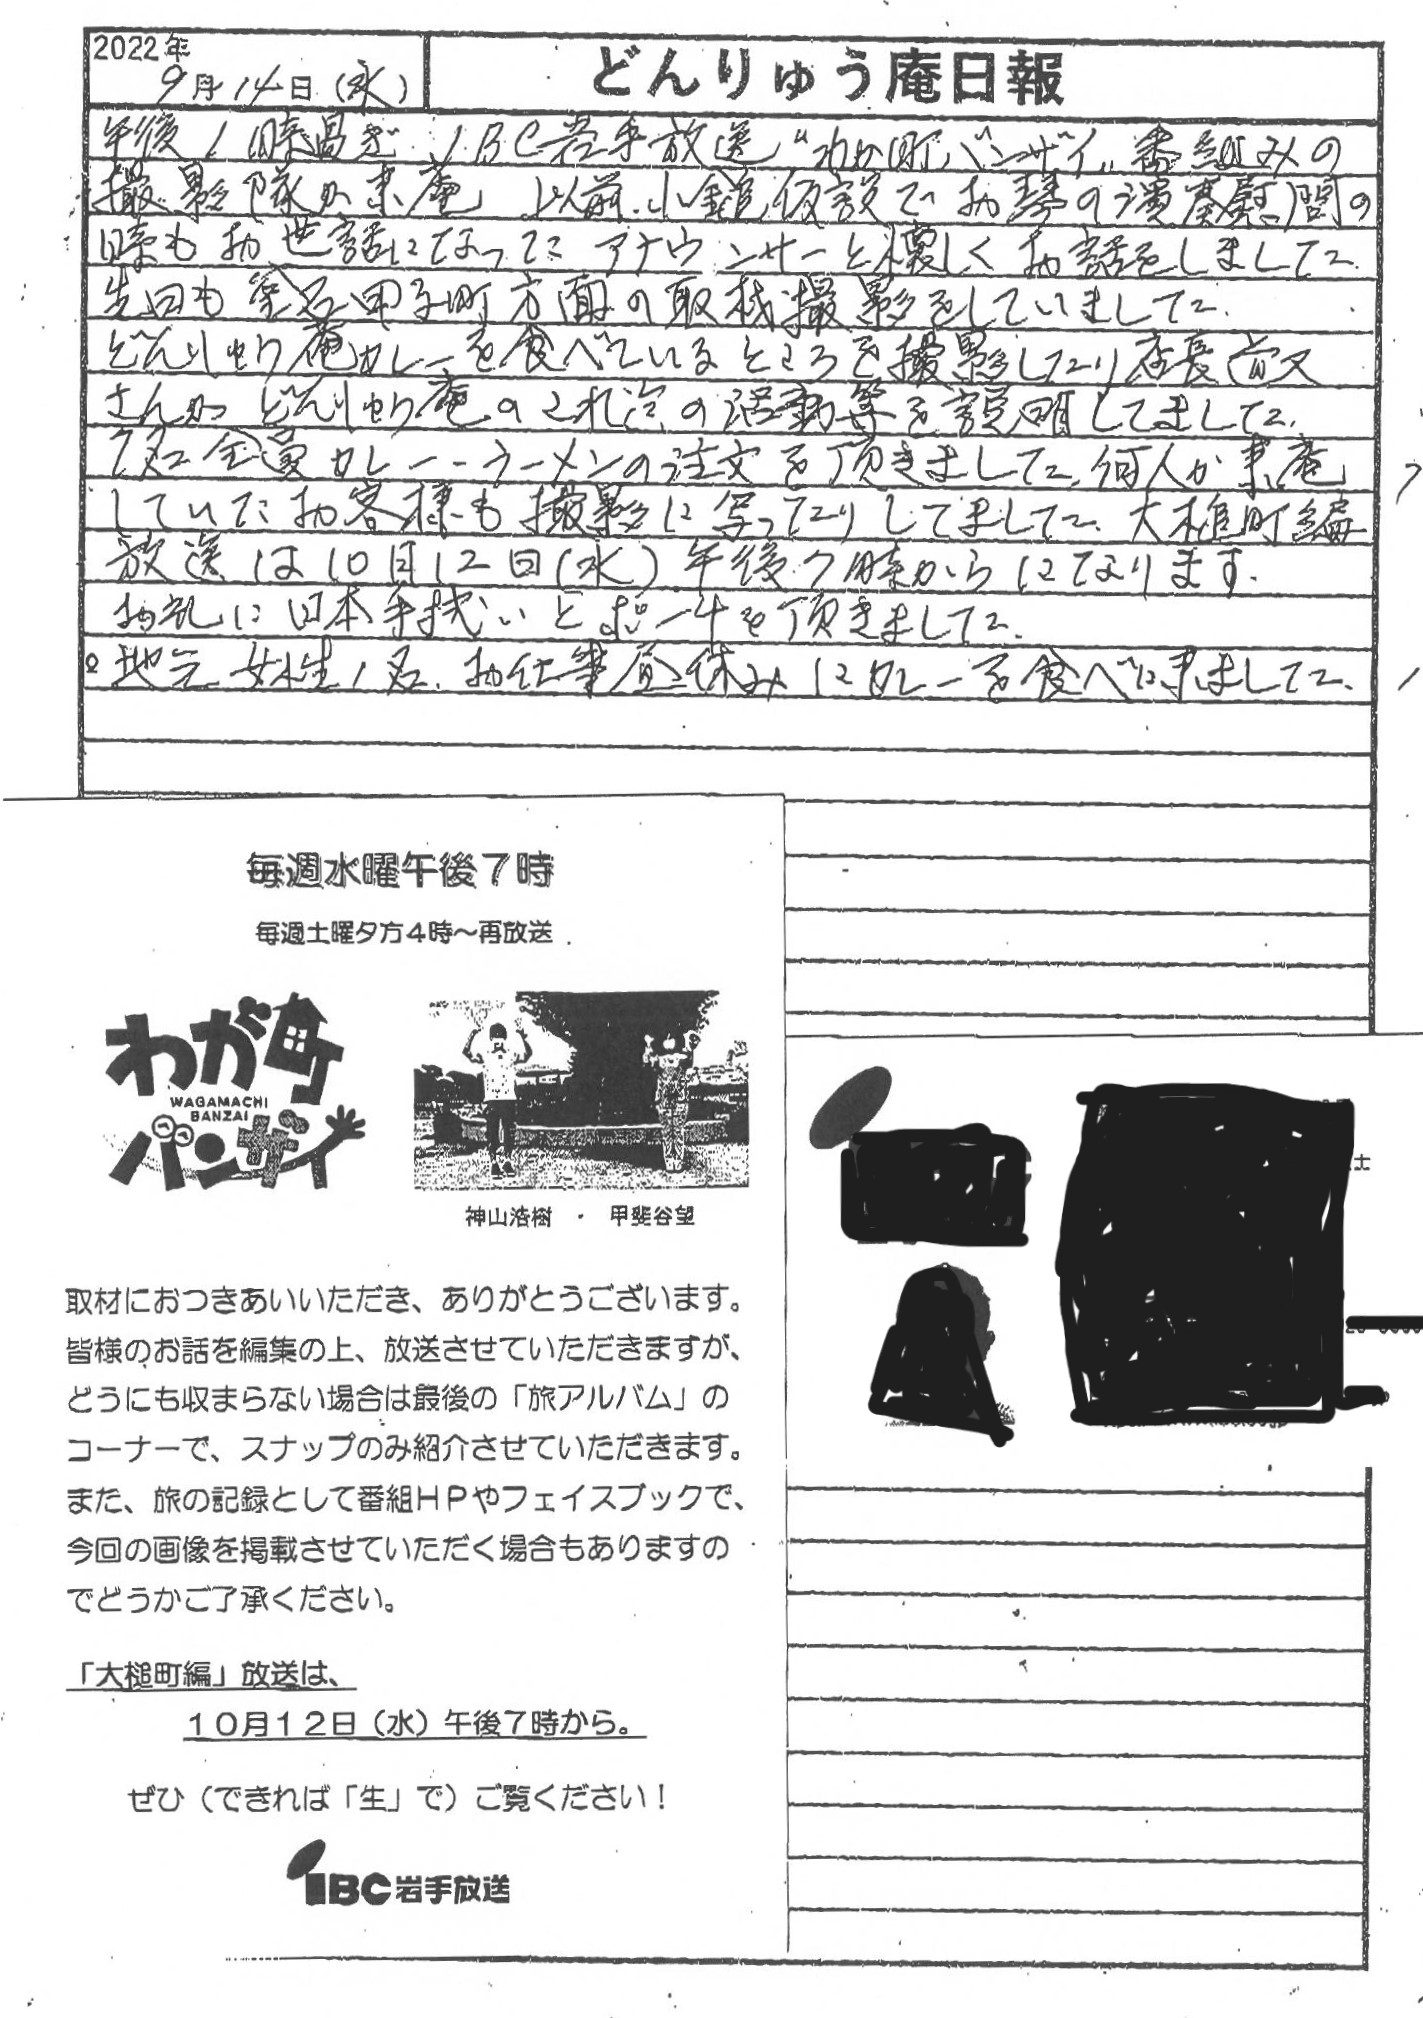 2022年
9月14日(水)
どんりゅう庵日報
午後1時過ぎ IBC岩手放送 "わが町バンザイ" 番組みの
撮影隊が来庵 以前、小鎚仮設でお琴の演奏慰問の
時もお世話になったアナウンサーと懐しくお話をしました。
先日も釜石甲子町方面の取材撮影をしていました。
どんりゅう庵カレーを食べているところを撮影したり店長
さんが どんりゅう庵のこれ迄の活動等を説明してました。
7名全員カレーラーメンの注文を頂きました。何人か来庵 7
していたお客様も撮影に写ったりしてました。大槌町編
放送は10月12日(水)午後7時からになります。
お礼に日本手拭いとポーチを頂きました。
○地元女性1名、お仕事昼休みにカレーを食べに来ました。 1
毎週水曜午後7時
毎週土曜夕方4時～再放送
わが町
WAGAMACHI
BANZAI
バンザイ
神山浩樹 ・ 甲斐谷望
士
取材におつきあいいただき、ありがとうございます。
皆様のお話を編集の上、放送させていただきますが、
どうにも収まらない場合は最後の「旅アルバム」の
コーナーで、スナップのみ紹介させていただきます。
また、旅の記録として番組HPやフェイスブックで、
今回の画像を掲載させていただく場合もありますの
でどうかご了承ください。
「大槌町編」放送は、
10月12日（水）午後7時から。
ぜひ（できれば「生」で）ご覧ください！
IBC岩手放送